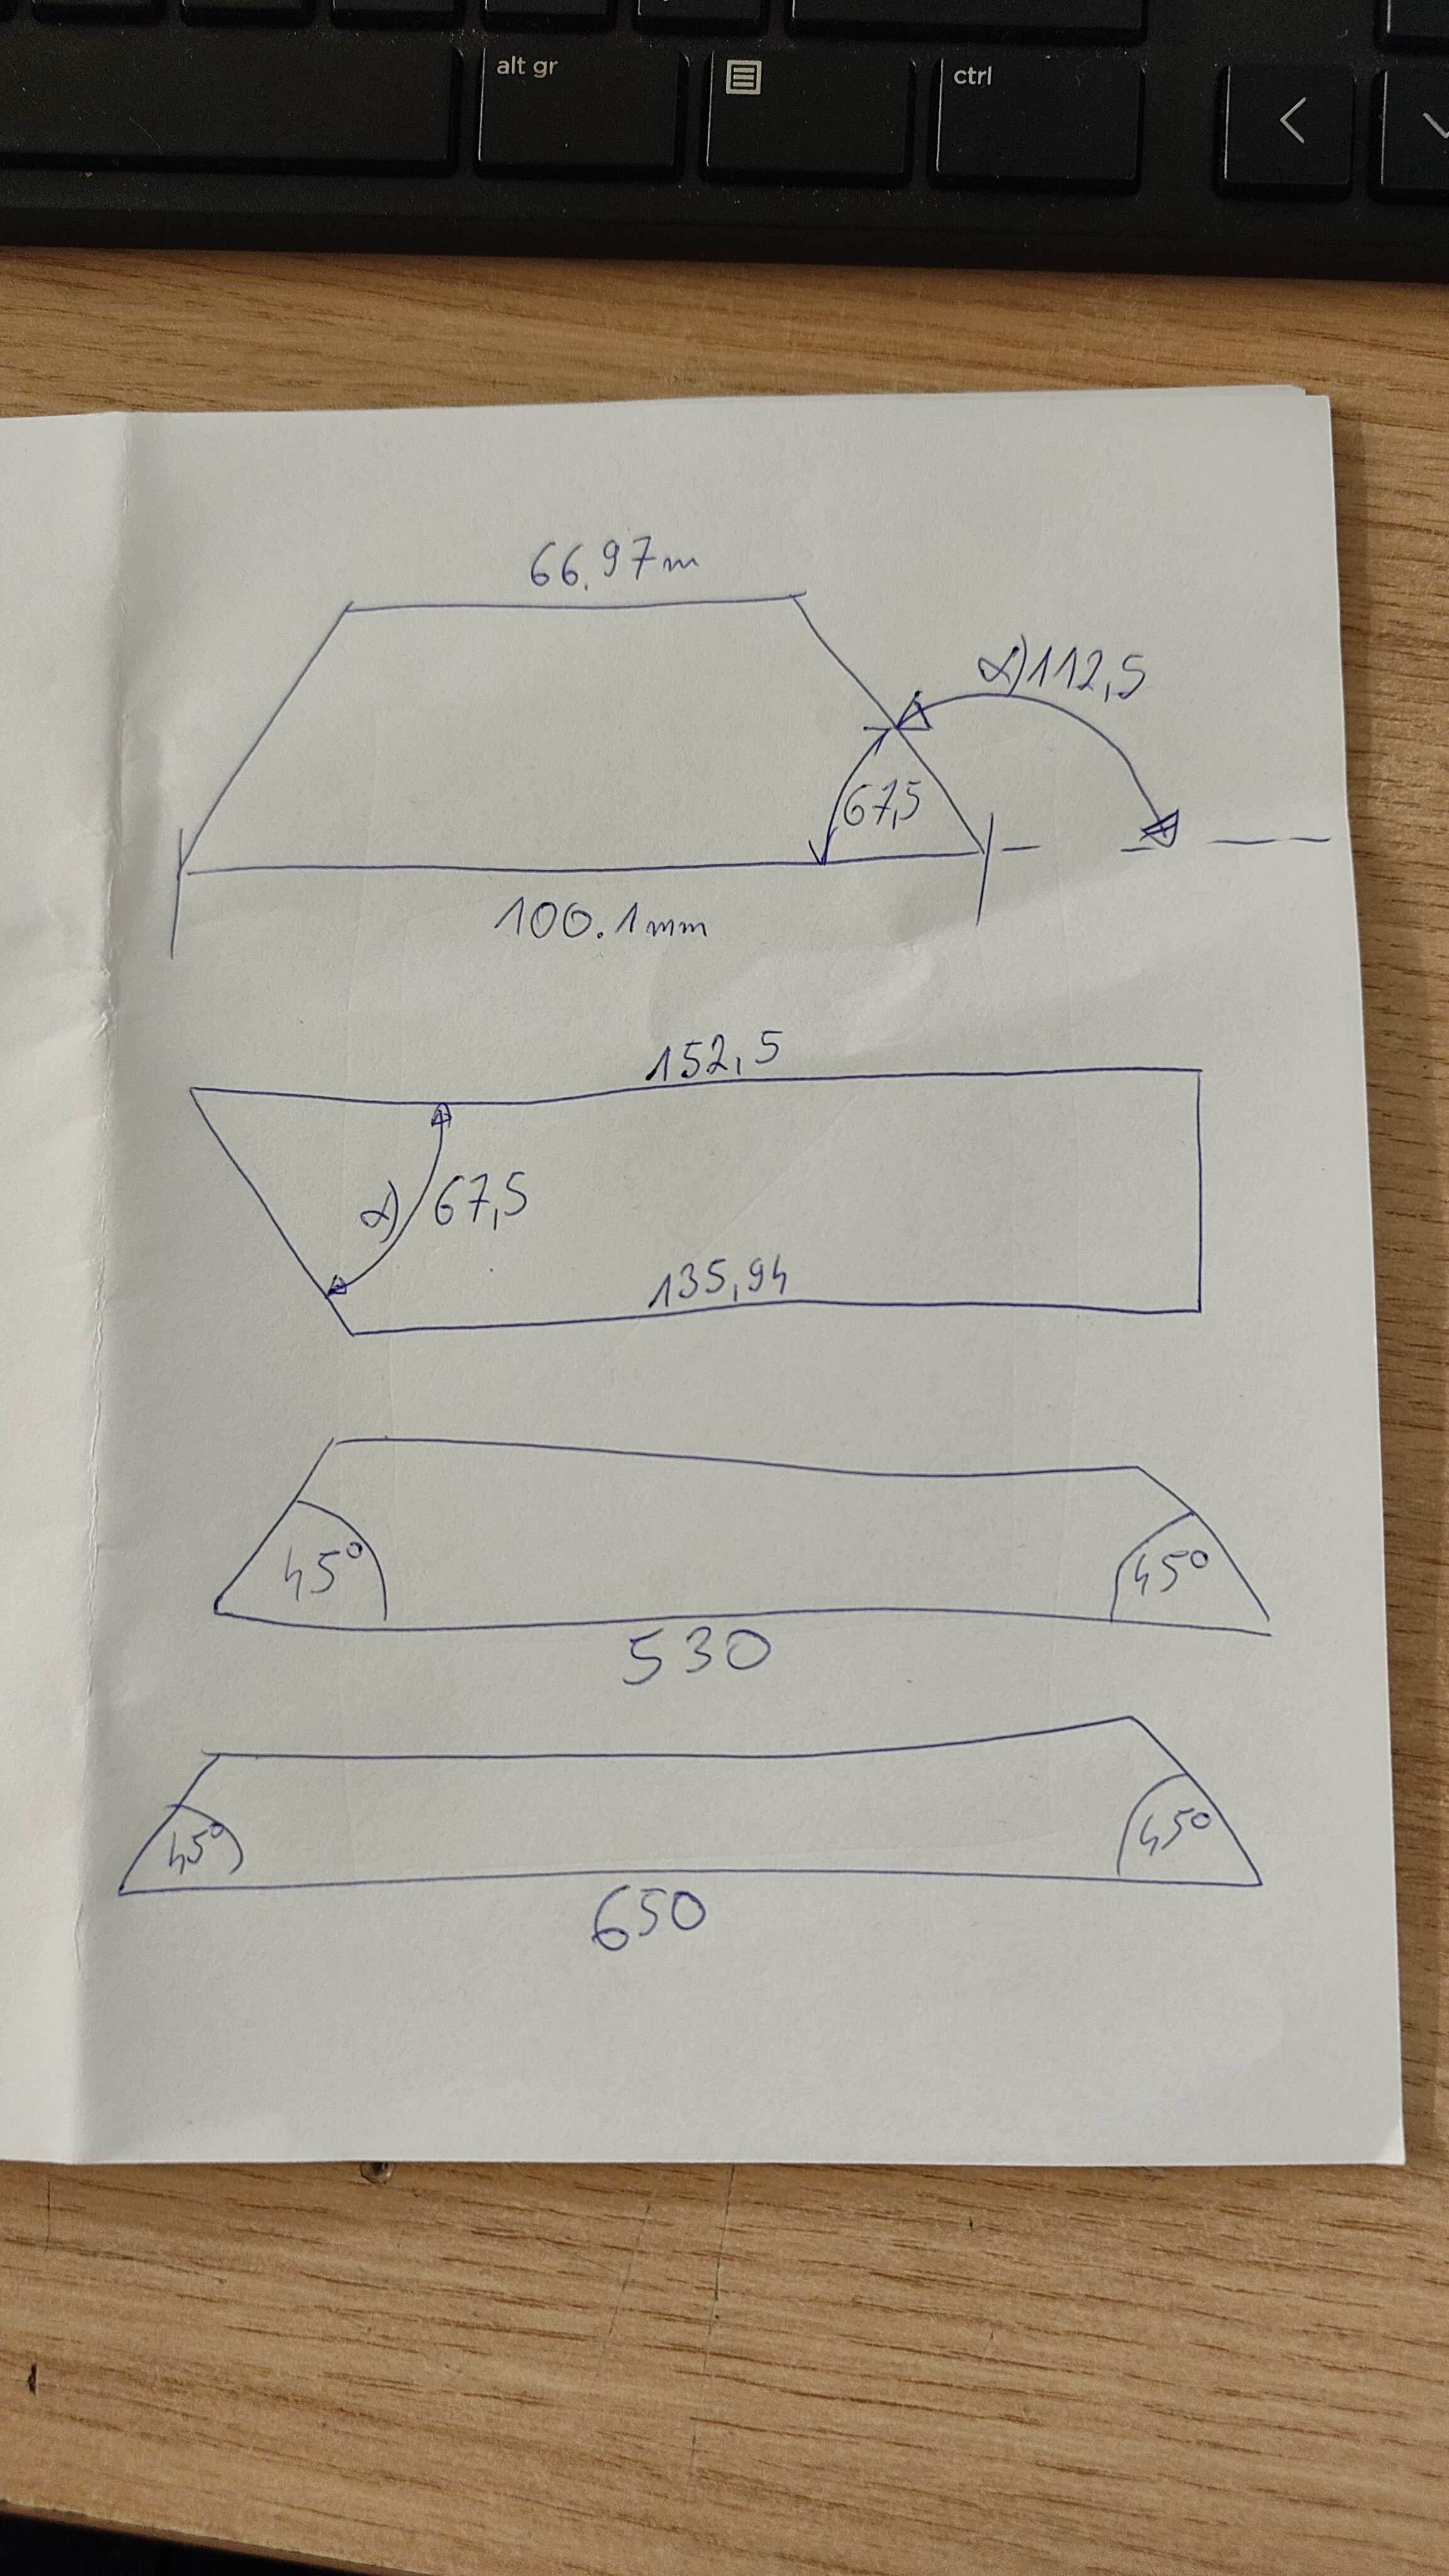 alt gr
ctrl
66.97m
α)112,5
67,5
100.1mm
152,5
α) 67,5
135,94
45° 45°
530
45° 45°
650